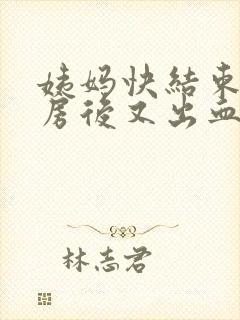 姨妈快結束
房後又出血
林志君